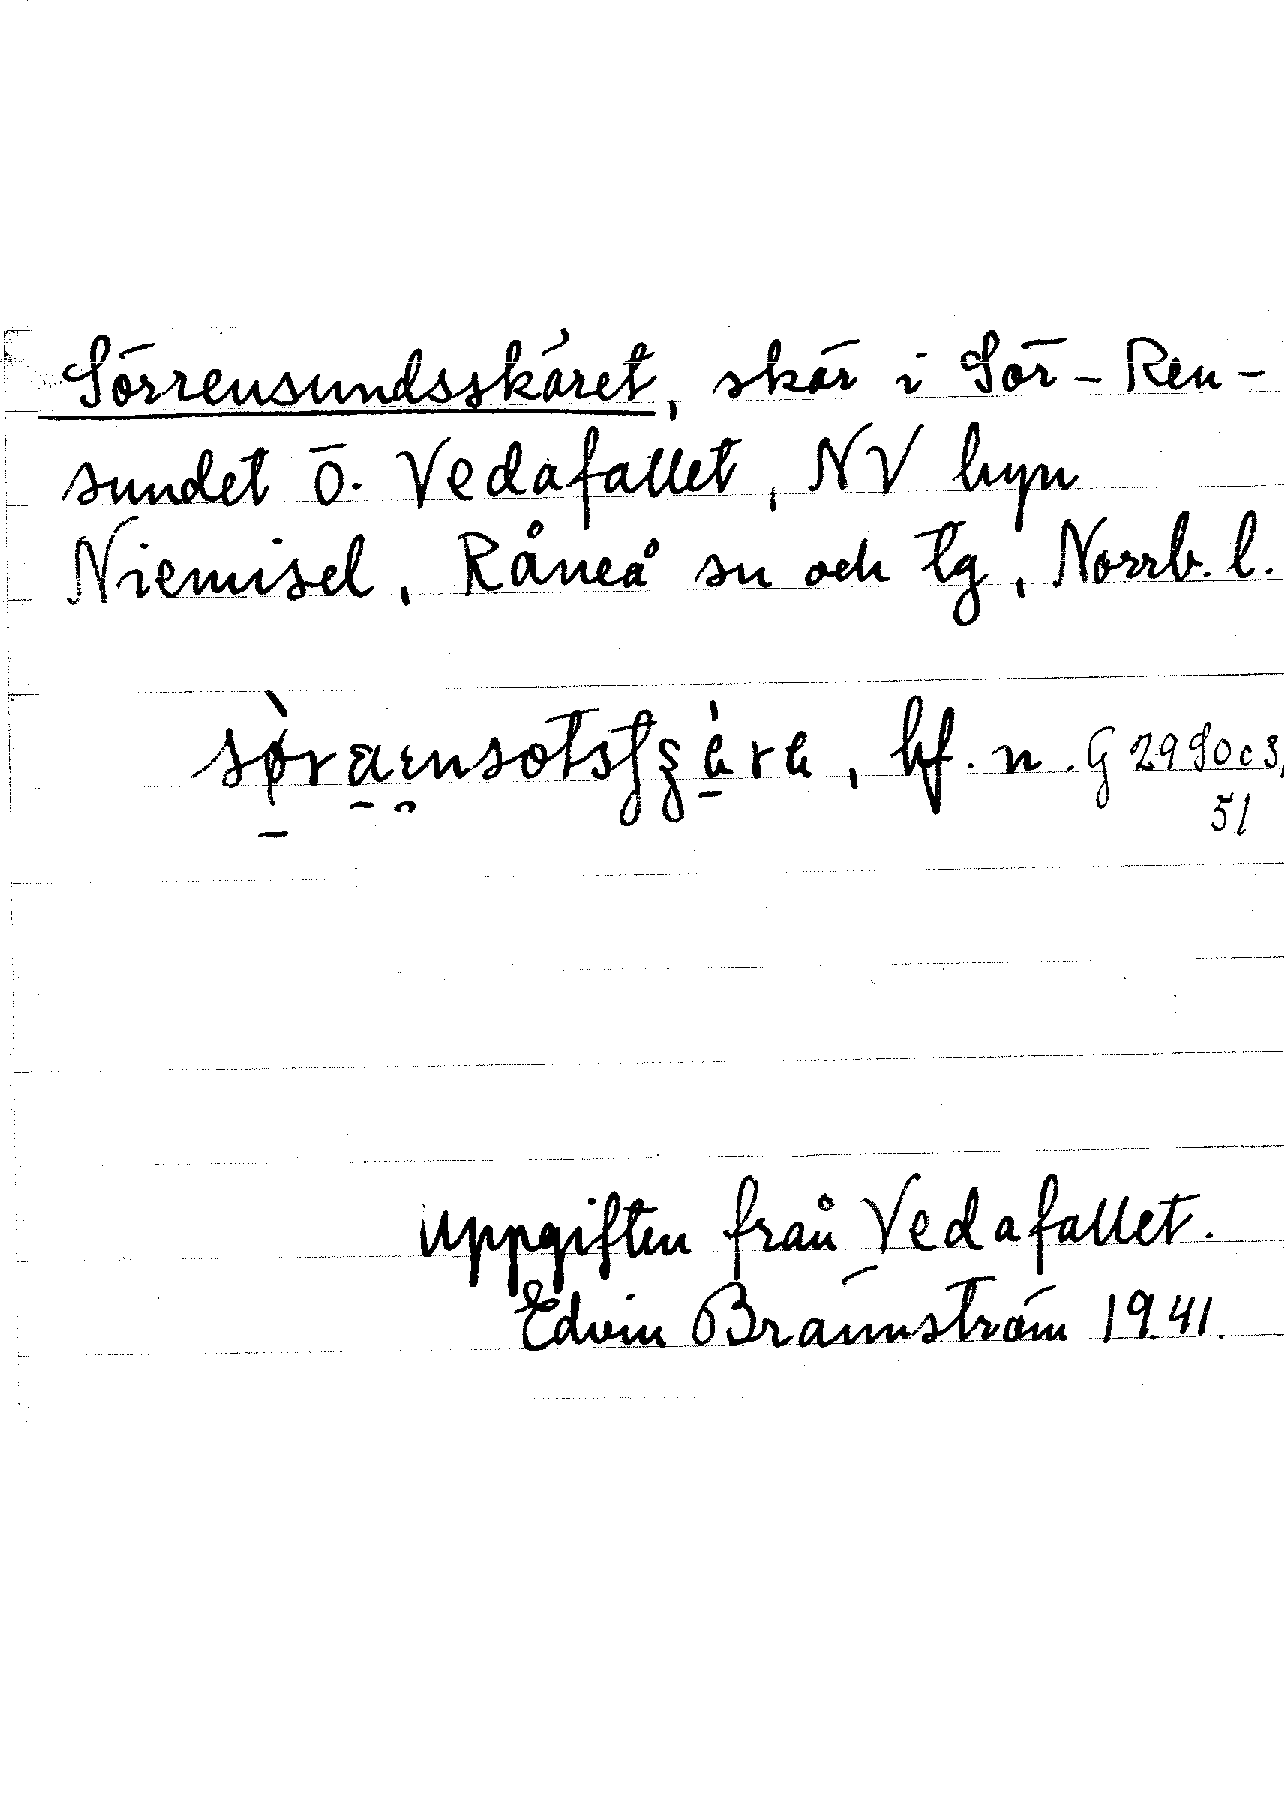 Sörrensundsskäret, skär i Sör-Ren-
sundet ö. Vedafallet, NV byn
Niemisel, Råneå sn och tg, Norrb. l.
bf. n. G 29 So c 3,
51
Uppgiften från Vedafallet.
Edvin Brännström 1941.